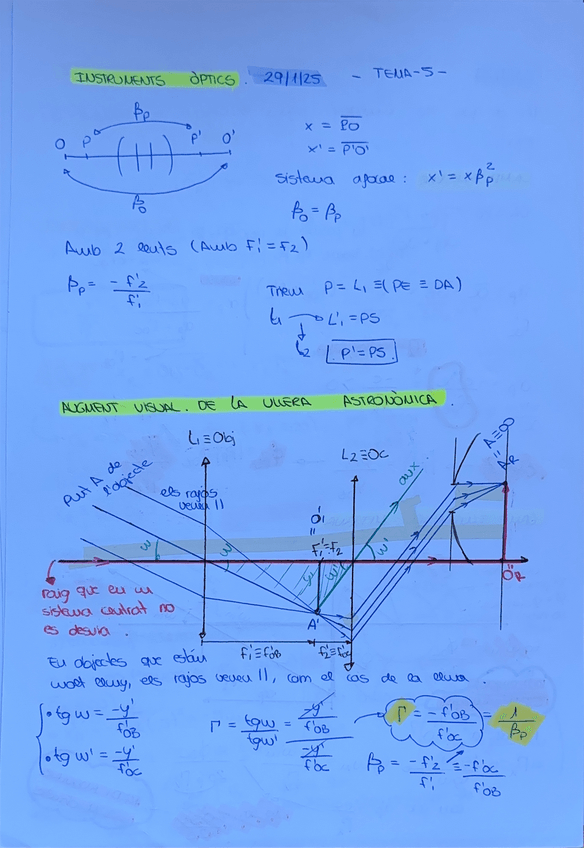 INSTRUMENTS ÒPTICS. 29/1/25 - TEMA-5-
βp
O P P' O'
βo
x = PO
x' = P'O'
sistema afocal: x' = xβp²
βo = βp
Amb 2 lents (Amb F'1 = F2)
βp = -f'2 / f'1
Tenim P = L1 ≡ (PE ≡ DA)
L1 → L'1 = PS
L2
P' = PS.
AUGMENT VISUAL DE LA ULLERA ASTRONÒMICA.
L1≡Obj
L2≡Oc
aux
A'≡∞
A'R
Punt A de l'objecte
els rajos
venen ||
O'1
F'1=F2
w w w w' w'
O''R
A'
raig que en un
sistema centrat no
es desvia.
f'1≡f'OB f'2≡f'OC
En objectes que están
molt lluny, els rajos venen ||, com el cas de la lluna.
• tg w = -y' / f'OB
• tg w' = -y' / f'OC
Γ = tgw / tgw' = -y'/f'OB / -y'/f'OC
Γ = -f'OB / f'OC = 1 / βp
βp = -f'2 / f'1 = -f'OC / f'OB